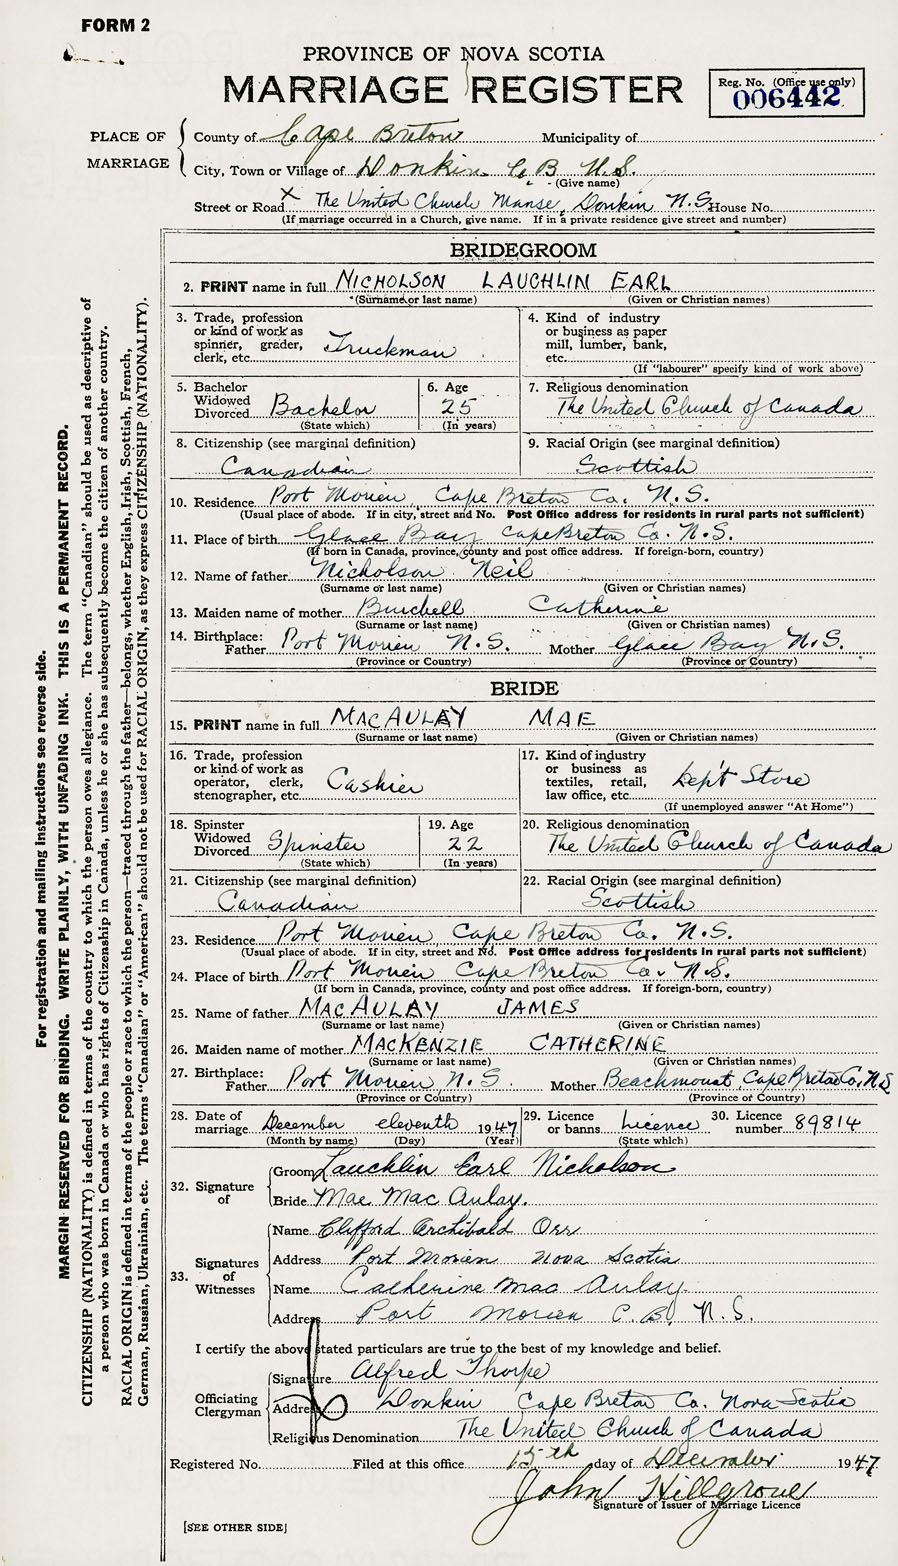 FORM 2
PROVINCE OF NOVA SCOTIA
MARRIAGE REGISTER
Reg. No. (Office use only)
006442
PLACE OF MARRIAGE
County of Cape Breton Municipality of
City, Town or Village of Donkin C.B. N.S.
(Give name)
Street or Road X The United Church Manse, Donkin N.S. House No.
(If marriage occurred in a Church, give name. If in a private residence give street and number)
BRIDEGROOM
2. PRINT name in full NICHOLSON LAUCHLIN EARL
(Surname or last name) (Given or Christian names)
3. Trade, profession or kind of work as spinner, grader, clerk, etc. Truckman
4. Kind of industry or business as paper mill, lumber, bank, etc.
(If "labourer" specify kind of work above)
5. Bachelor Widowed Divorced Bachelor
(State which)
6. Age 25
(In years)
7. Religious denomination
The United Church of Canada
8. Citizenship (see marginal definition)
Canadian
9. Racial Origin (see marginal definition)
Scottish
10. Residence Port Morien, Cape Breton Co. N.S.
(Usual place of abode. If in city, street and No. Post Office address for residents in rural parts not sufficient)
11. Place of birth Glace Bay Cape Breton Co. N.S.
(If born in Canada, province, county and post office address. If foreign-born, country)
12. Name of father Nicholson Neil
(Surname or last name) (Given or Christian names)
13. Maiden name of mother Burchell Catherine
(Surname or last name) (Given or Christian names)
14. Birthplace: Father Port Morien N.S. Mother Glace Bay N.S.
(Province or Country) (Province or Country)
BRIDE
15. PRINT name in full MACAULAY MAE
(Surname or last name) (Given or Christian names)
16. Trade, profession or kind of work as operator, clerk, stenographer, etc. Cashier
17. Kind of industry or business as textiles, retail, law office, etc. Dep't Store
(If unemployed answer "At Home")
18. Spinster Widowed Divorced Spinster
(State which)
19. Age 22
(In years)
20. Religious denomination
The United Church of Canada
21. Citizenship (see marginal definition)
Canadian
22. Racial Origin (see marginal definition)
Scottish
23. Residence Port Morien, Cape Breton Co. N.S.
(Usual place of abode. If in city, street and No. Post Office address for residents in rural parts not sufficient)
24. Place of birth Port Morien Cape Breton Co. N.S.
(If born in Canada, province, county and post office address. If foreign-born, country)
25. Name of father MACAULAY JAMES
(Surname or last name) (Given or Christian names)
26. Maiden name of mother MACKENZIE CATHERINE
(Surname or last name) (Given or Christian names)
27. Birthplace: Father Port Morien N.S. Mother Beachmount, Cape Breton Co., N.S.
(Province or Country) (Province or Country)
28. Date of marriage December eleventh 1947
(Month by name) (Day) (Year)
29. Licence or banns Licence
(State which)
30. Licence number 89814
32. Signature of
Groom Lauchlin Earl Nicholson
Bride Mae Mac Aulay.
33. Signatures of Witnesses
Name Clifford Archibald Orr
Address Port Morien Nova Scotia
Name Catherine Mac Aulay
Address Port Morien C.B. N.S.
I certify the above stated particulars are true to the best of my knowledge and belief.
Officiating Clergyman
Signature Alfred Thorpe
Address Donkin Cape Breton Co. Nova Scotia
Religious Denomination The United Church of Canada
Registered No. Filed at this office 15th day of December 1947
John Hillgrove
Signature of Issuer of Marriage Licence
[SEE OTHER SIDE]
For registration and mailing instructions see reverse side.
MARGIN RESERVED FOR BINDING. WRITE PLAINLY, WITH UNFADING INK. THIS IS A PERMANENT RECORD.
CITIZENSHIP (NATIONALITY) is defined in terms of the country to which the person owes allegiance. The term "Canadian" should be used as descriptive of
a person who was born in Canada or who has rights of Citizenship in Canada, unless he or she has subsequently become the citizen of another country.
RACIAL ORIGIN is defined in terms of the people or race to which the person—traced through the father—belongs, whether English, Irish, Scottish, French,
German, Russian, Ukrainian, etc. The terms "Canadian" or "American" should not be used for RACIAL ORIGIN, as they express CITIZENSHIP (NATIONALITY).